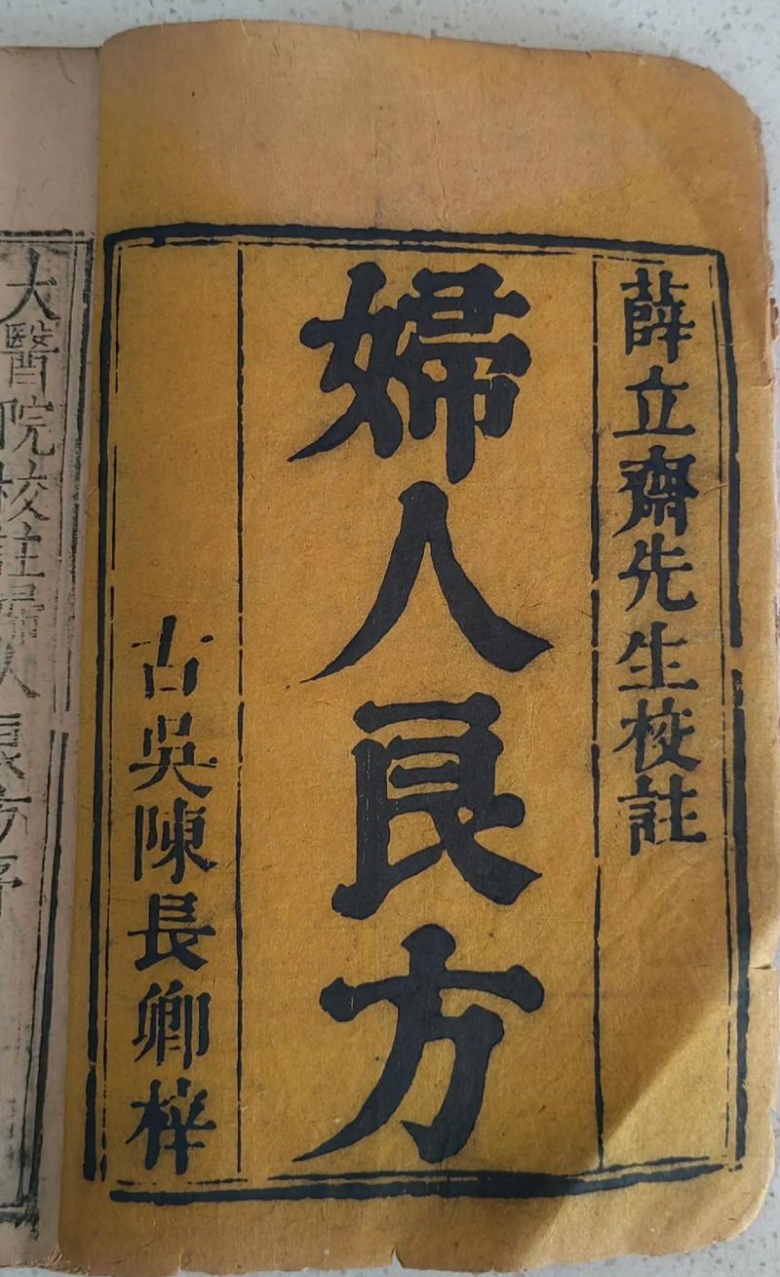 薛立齋先生校註
婦人良方
古吳陳長卿梓
大醫院校註婦人良方序